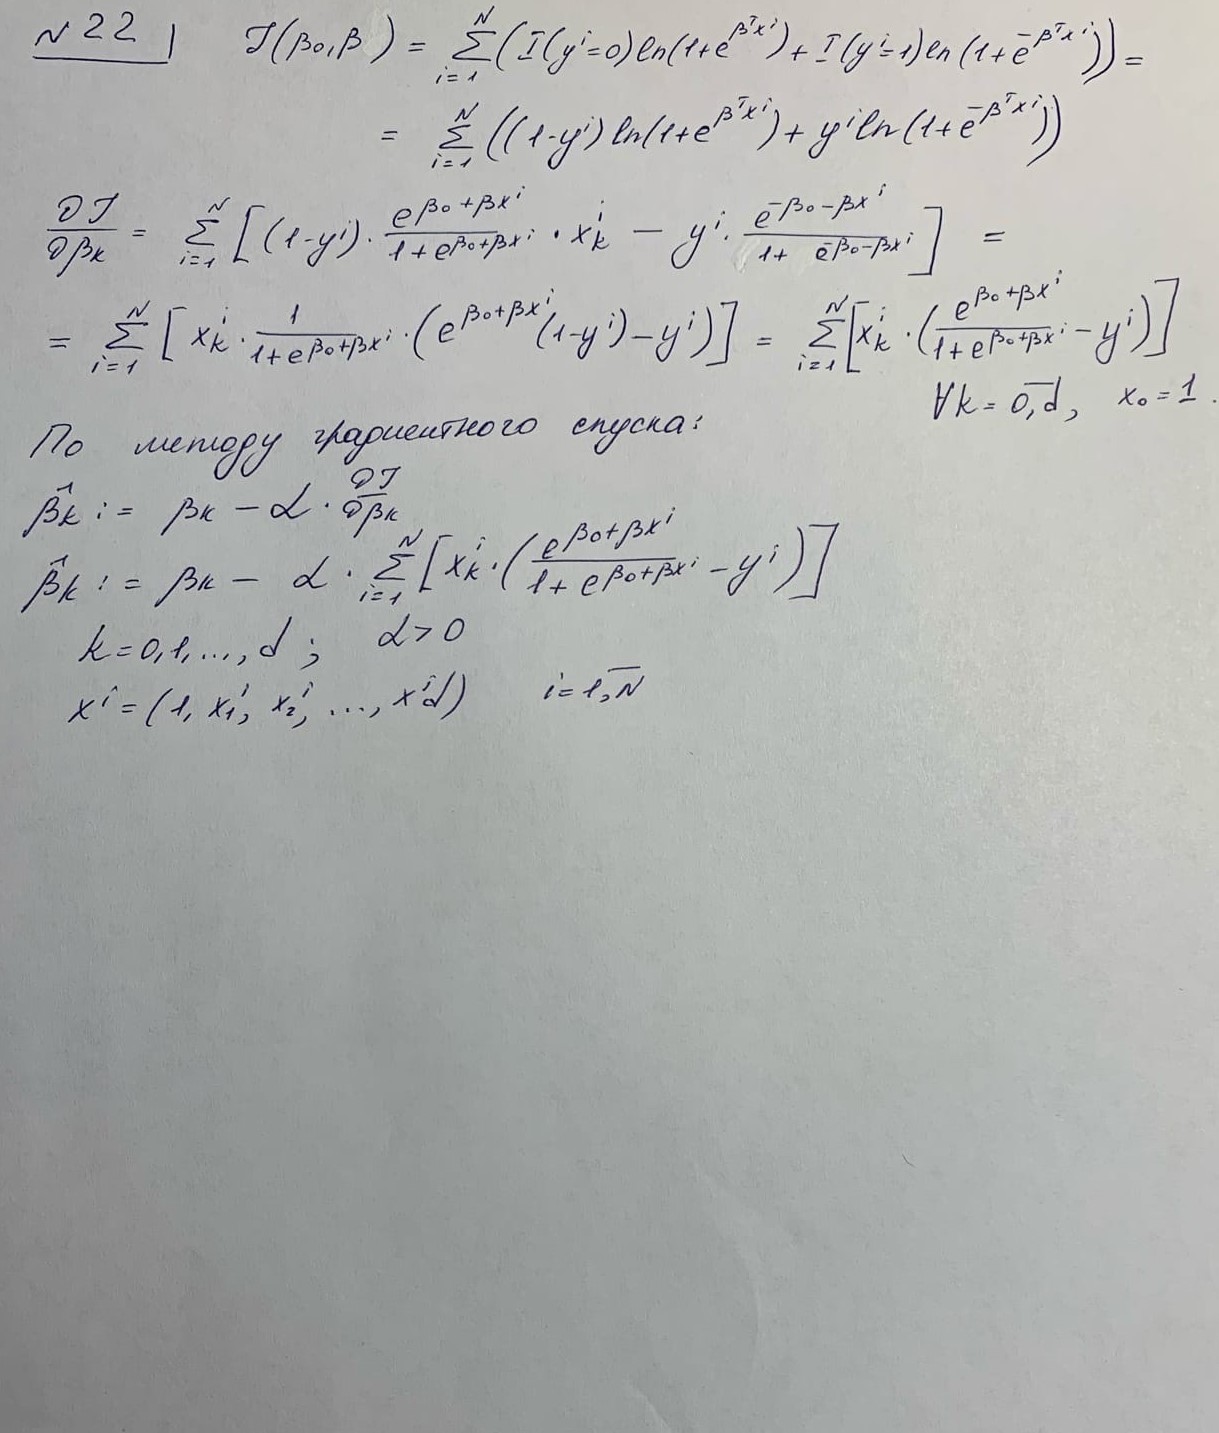 №22 J(β₀,β) = Σ_{i=1}^{N} (I(yⁱ=0)ln(1+e^{βᵀxⁱ}) + I(yⁱ=1)ln(1+e^{-βᵀxⁱ})) =
= Σ_{i=1}^{N} ((1-yⁱ)ln(1+e^{βᵀxⁱ}) + yⁱln(1+e^{-βᵀxⁱ}))
∂J/∂βₖ = Σ_{i=1}^{N} [(1-yⁱ)·e^{β₀+βxⁱ}/(1+e^{β₀+βxⁱ})·xₖⁱ − yⁱ·e^{-β₀-βxⁱ}/(1+e^{-β₀-βxⁱ})] =
= Σ_{i=1}^{N} [xₖⁱ·1/(1+e^{β₀+βxⁱ})·(e^{β₀+βxⁱ}(1-yⁱ)−yⁱ)] = Σ_{i=1}^{N} [xₖⁱ·(e^{β₀+βxⁱ}/(1+e^{β₀+βxⁱ})−yⁱ)]
∀k = 0,d̅, x₀=1.
По методу градиентного спуска:
β̂ₖ := βₖ − α·∂J/∂βₖ
β̂ₖ := βₖ − α·Σ_{i=1}^{N} [xₖⁱ·(e^{β₀+βxⁱ}/(1+e^{β₀+βxⁱ})−yⁱ)]
k=0,1,...,d; α>0
xⁱ=(1, x₁ⁱ, x₂ⁱ, ..., xⁱd) i=1,N̅